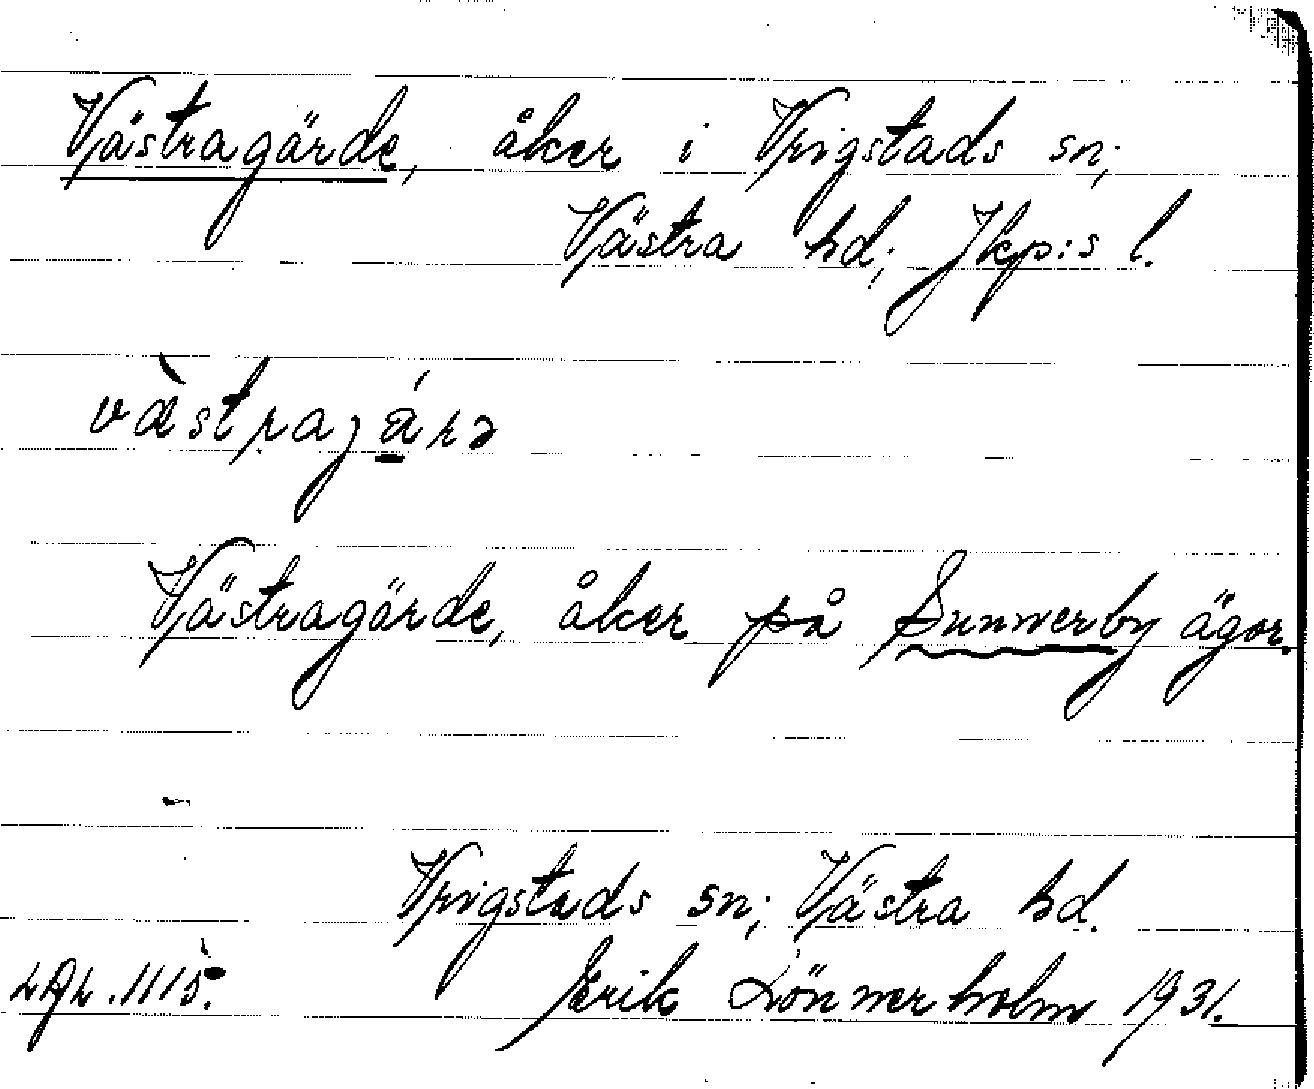 Västragärde, åker i Vrigstads sn;
Västra hd; Jkp:s l.
västragärə
Västragärde, åker på Sunnerby ägor.
Vrigstads sn; Västra hd.
1115. Erik Lönnerholm 1931.